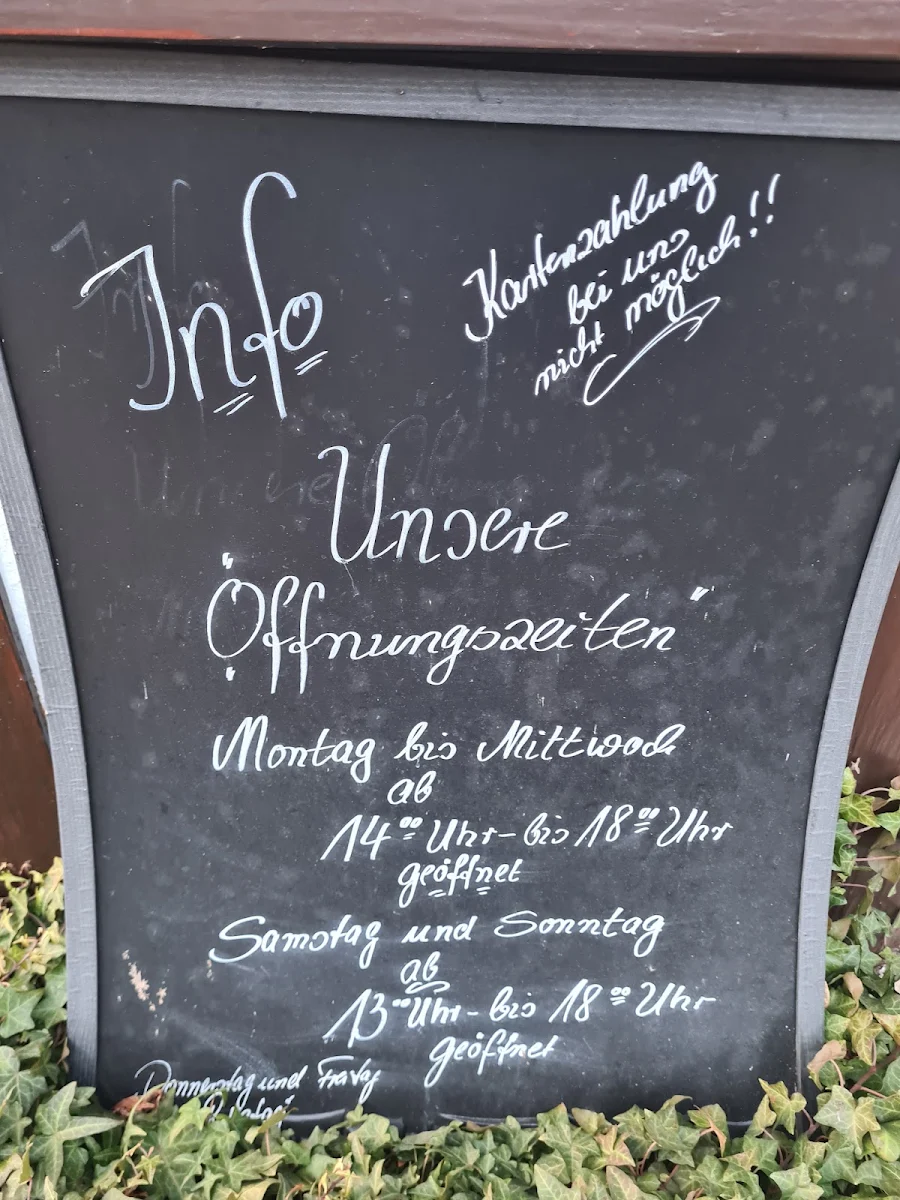 Info
Kartenzahlung
bei uns
nicht möglich!!
Unsere
"Öffnungszeiten"
Montag bis Mittwoch
ab
14⁰⁰ Uhr - bis 18⁰⁰ Uhr
geöffnet
Samstag und Sonntag
ab
13⁰⁰ Uhr - bis 18⁰⁰ Uhr
geöffnet
Donnerstag und Freitag